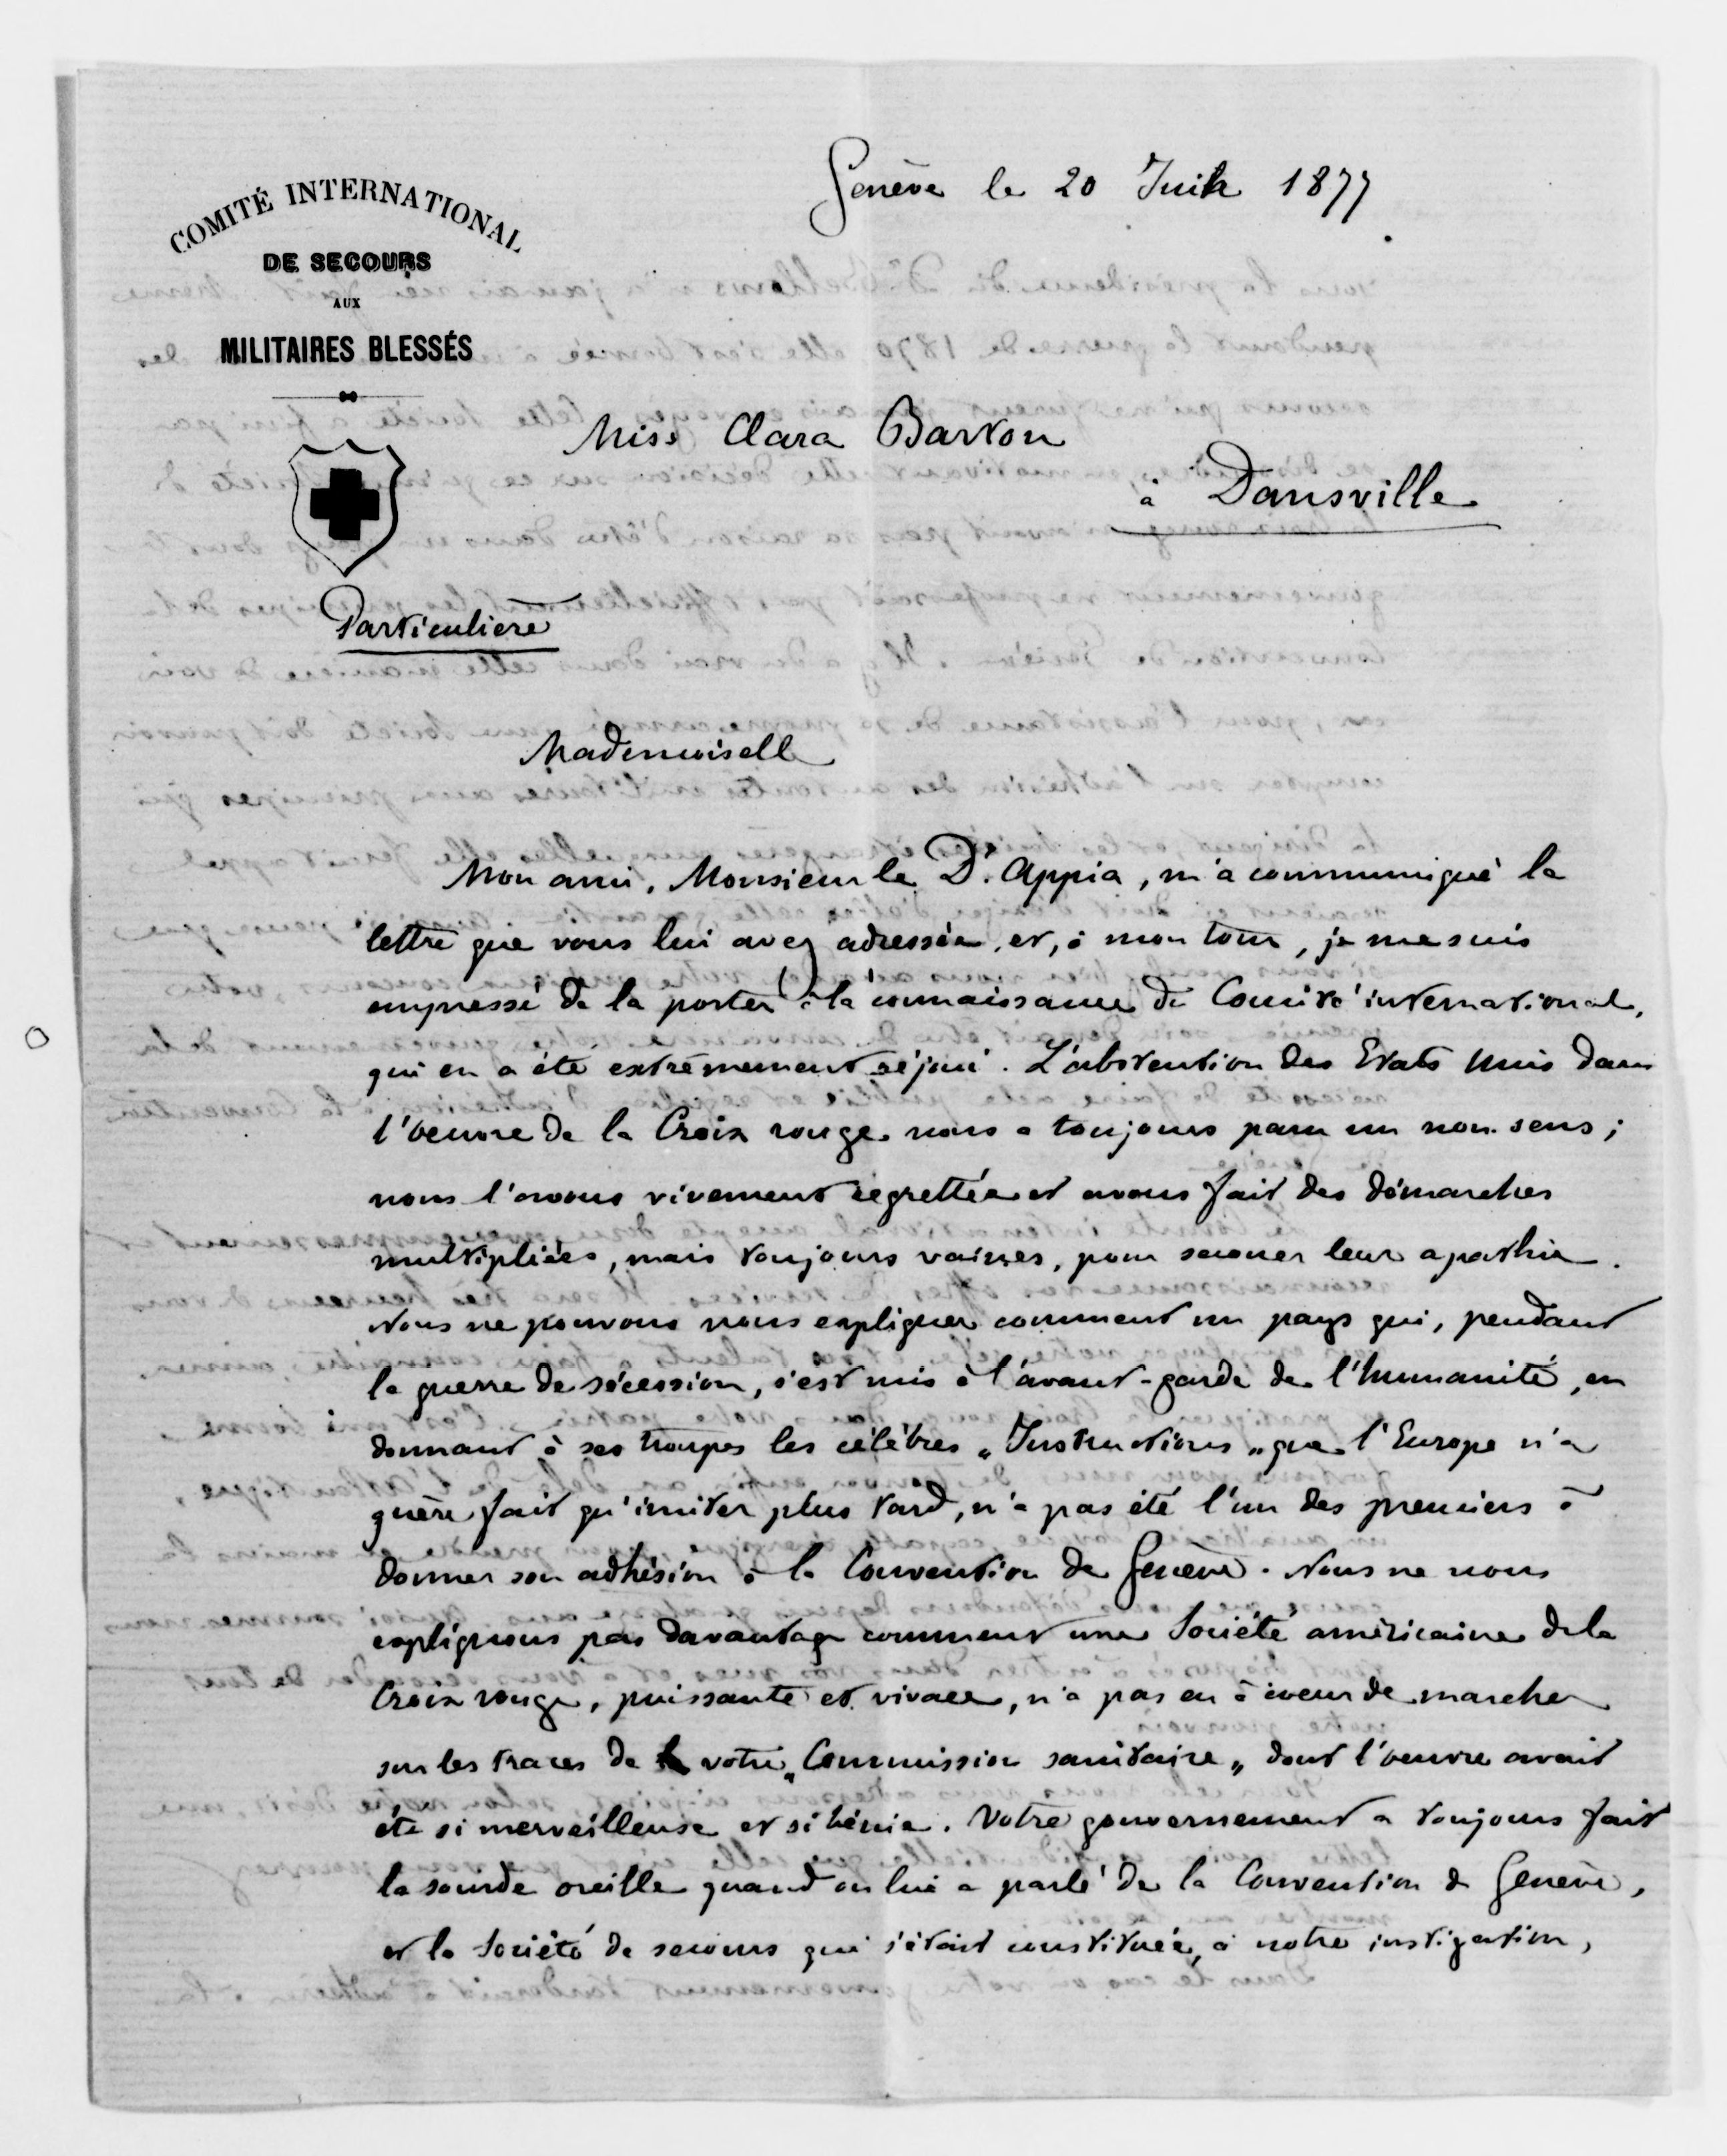 COMITÉ INTERNATIONAL
DE SECOURS
AUX
MILITAIRES BLESSÉS
Genève le 20 Juin 1877
Miss Clara Barton
à Dansville
Particulière
Mademoiselle
Mon ami, Monsieur le Dr. Appia, m'a communiqué la
lettre que vous lui avez adressée, et, à mon tour, je me suis
empressé de la porter à la connaissance du Comité international,
qui en a été extrêmement réjoui. L'abstention des Etats Unis dans
l'oeuvre de la Croix rouge nous a toujours paru un non-sens;
nous l'avons vivement regrettée et avons fait des démarches
multipliées, mais toujours vaines, pour secouer leur apathie.
Nous ne pouvons nous expliquer comment un pays qui, pendant
la guerre de sécession, s'est mis à l'avant-garde de l'humanité, en
donnant à ses troupes les célèbres „Instructions„ que l'Europe n'a
guère fait qu'imiter plus tard, n'a pas été l'un des premiers à
donner son adhésion à la Convention de Genève. Nous ne nous
expliquons pas davantage comment une Société américaine de la
Croix rouge, puissante et vivace, n'a pas eu à coeur de marcher
sur les traces de votre „Commission sanitaire„ dont l'oeuvre avait
été si merveilleuse et si bénie. Votre gouvernement a toujours fait
la sourde oreille quand on lui a parlé de la Convention de Genève,
et la Société de secours qui s'était constituée, à notre instigation,